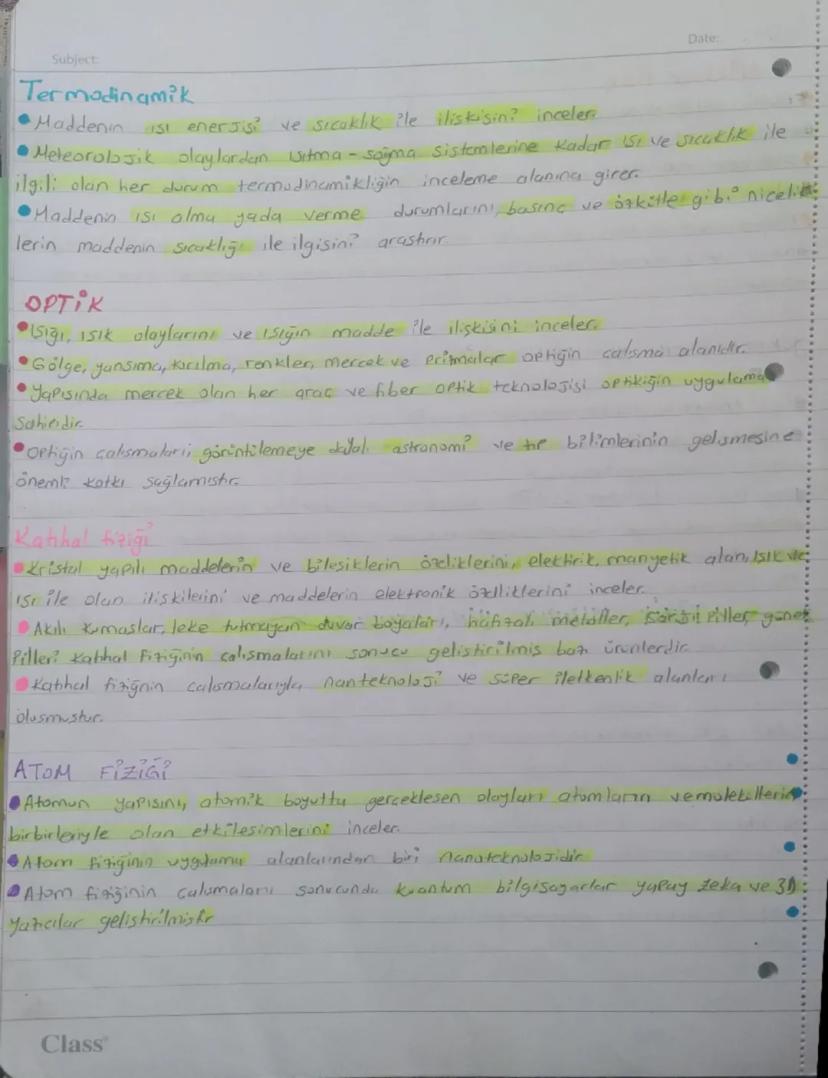 Date:
Subject:
Termodinamik
• Maddenin ısı enerjisi ve sıcaklık ile ilişkisini inceler.
• Meteorolojik olaylardan ısıtma-soğma sistemlerine kadar ısı ve sıcaklık ile
ilgili olan her durum termodinamikliğin inceleme alanına girer.
• Maddenin ısı alma yada verme durumlarını, basınç ve özkütle gibi nicelik
lerin maddenin sıcaklığı ile ilgisini araştırır
OPTİK
• Işığı, ışık olaylarını ve ışığın madde ile ilişkisini inceler.
• Gölge, yansıma, kırılma, renkler, mercek ve prizmalar optiğin calışma alanıdır.
• Yapısında mercek olan her araç ve fiber optik teknolojisi optikiğin uygulama
sahasıdır.
• Optiğin çalışmaları görüntülemeye dayalı astronomi ve tıp bilimlerinin gelişmesine
önemli katkı sağlamıştır.
Katıhal fiziği
• Kristal yapılı maddelerin ve bileşiklerin özeliklerini, elektirik, manyetik alan, ışık ve
ısı ile olan ilişkilerini ve maddelerin elektronik özelliklerini inceler.
• Akıllı kumaşlar, leke tutmayan duvar boyaları, hafızalı metaller, piller, güneş
Pilleri katıhal fiziğinin çalışmalarını sonucu geliştirilmiş bazı ürünlerdir
• Katıhal fiziğnin calısmalarıyla nanteknoloji ve süper iletkenlik alanları
oluşmuştur.
ATOM FİZİĞİ
• Atomun yapısını, atomik boyutta gerceklesen olayları atomların ve moleküllerin
birbirleriyle olan etkilesimlerini inceler.
• Atom fiziğinin uygulama alanlarından biri nanoteknolojidir
• Atom fiziğinin calısmaları sonucunda kuantum bilgisayarlar yapay zeka ve 3D
yazıcılar geliştirilmiştir
Class